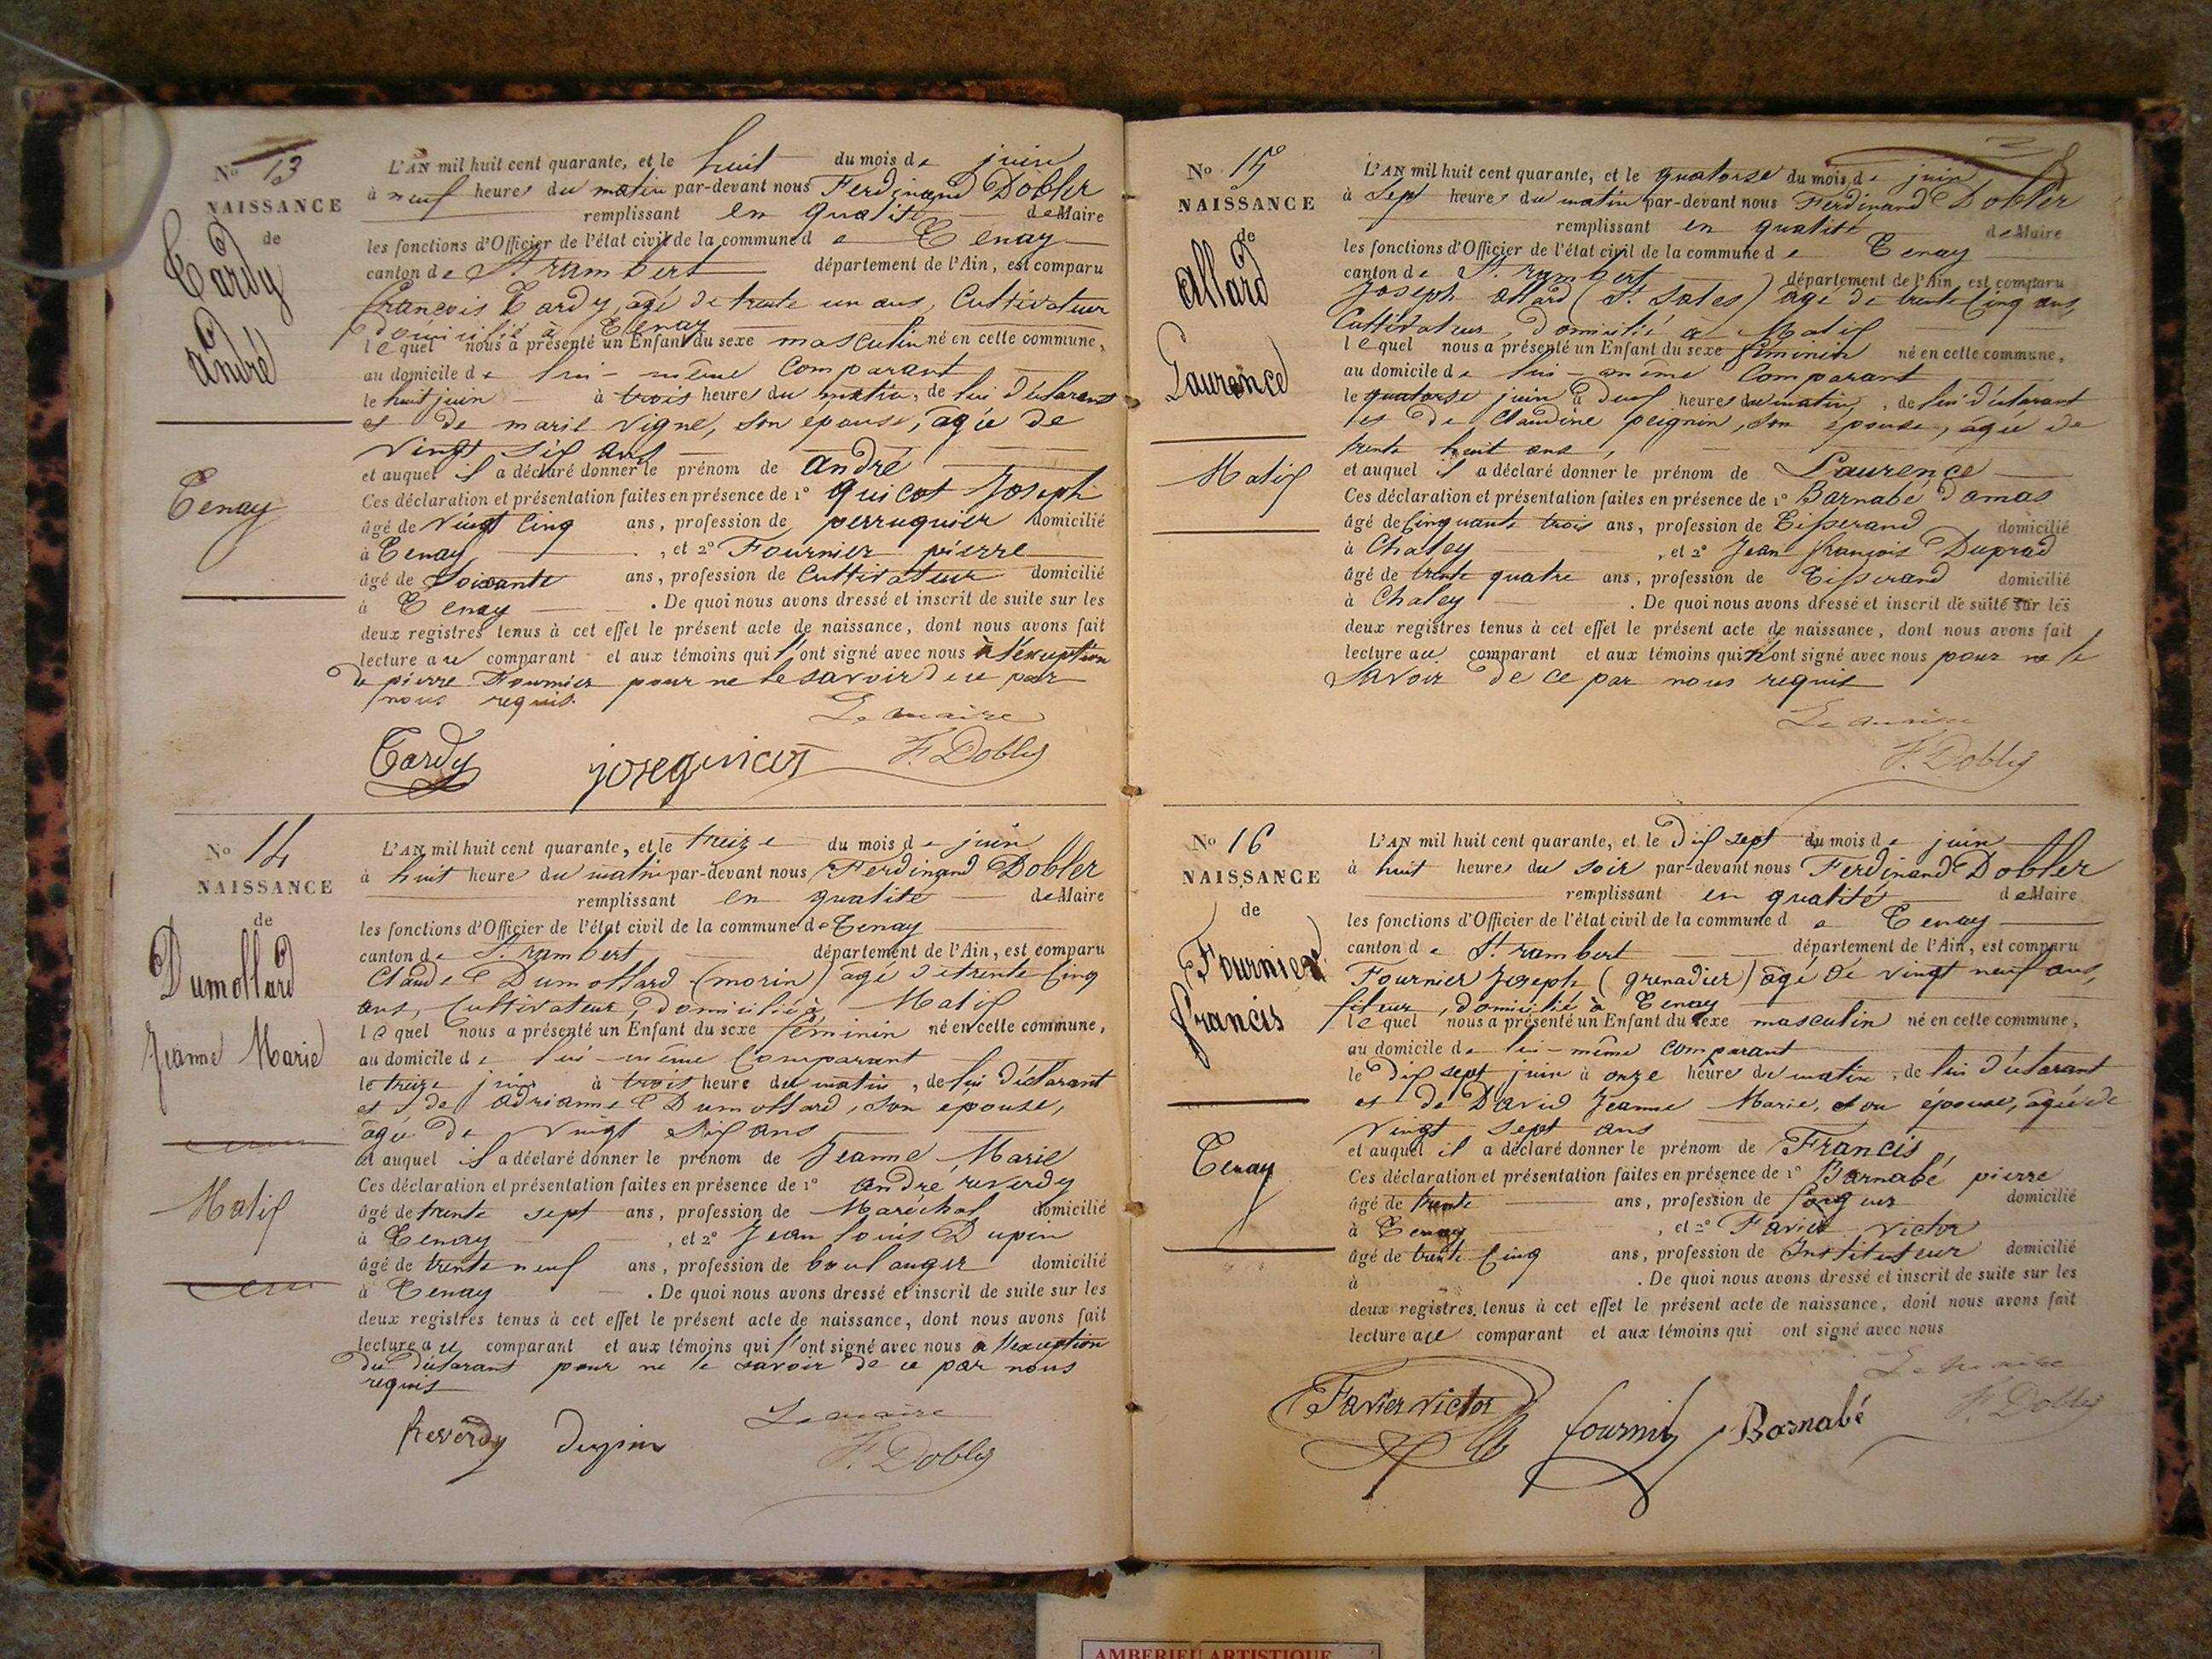 No 13
NAISSANCE
de
Tardy
André
Tenay
L'AN mil huit cent quarante, et le huit du mois de juin
à neuf heures du matin par-devant nous Ferdinand Dobler
remplissant en qualité de Maire
les fonctions d'Officier de l'état civil de la commune de Tenay
canton de St. rambert département de l'Ain, est comparu
francois Tardy, agé de trente un ans, Cultivateur
domicilié à Tenay
lequel nous a présenté un Enfant du sexe masculin né en cette commune,
au domicile de lui-même Comparant
le huit juin à trois heures du matin, de lui déclarant
et de marie vigne, son épouse, agée de
vingt six ans
et auquel il a déclaré donner le prénom de andré
Ces déclaration et présentation faites en présence de 1° guicot Joseph
âgé de vingt cinq ans, profession de perruquier domicilié
à Tenay, et 2° Fournier pierre
âgé de Soixante ans, profession de Cultivateur domicilié
à Tenay. De quoi nous avons dressé et inscrit de suite sur les
deux registres tenus à cet effet le présent acte de naissance, dont nous avons fait
lecture au comparant et aux témoins qui l'ont signé avec nous à l'exception
de pierre Fournier pour ne le savoir de ce par
nous requis.
Le maire
Tardy F. Dobler
No 14
NAISSANCE
de
Dumollard
Jeanne Marie
Malix
L'AN mil huit cent quarante, et le treize du mois de juin
à huit heure du matin par-devant nous Ferdinand Dobler
remplissant en qualité de Maire
les fonctions d'Officier de l'état civil de la commune de Tenay
canton de St. rambert département de l'Ain, est comparu
Claude Dumollard (morin) agé de trente cinq
ans, Cultivateur, domicilié à Malix
lequel nous a présenté un Enfant du sexe féminin né en cette commune,
au domicile de lui-même Comparant
le treize juin à trois heure du matin, de lui déclarant
et de adrianne Dumollard, son épouse,
agée de vingt six ans
et auquel il a déclaré donner le prénom de Jeanne Marie
Ces déclaration et présentation faites en présence de 1° andré réverdy
âgé de trente sept ans, profession de Maréchal domicilié
à Tenay, et 2° Jean louis Dupin
âgé de trente neuf ans, profession de boulanger domicilié
à Tenay. De quoi nous avons dressé et inscrit de suite sur les
deux registres tenus à cet effet le présent acte de naissance, dont nous avons fait
lecture au comparant et aux témoins qui l'ont signé avec nous à l'exception
du déclarant pour ne le savoir de ce par nous
requis
Le maire
Reverdy Dupin F. Dobler
No 15
NAISSANCE
de
Allard
Laurence
Malix
L'AN mil huit cent quarante, et le quatorse du mois de juin
à Sept heures du matin par-devant nous Ferdinand Dobler
remplissant en qualité de Maire
les fonctions d'Officier de l'état civil de la commune de Tenay
canton de St. rambert département de l'Ain, est comparu
Joseph allard (St. Sales) agé de trente cinq ans,
Cultivateur, domicilié à Malix
lequel nous a présenté un Enfant du sexe féminin né en cette commune,
au domicile de lui-même Comparant
le quatorse juin à deux heures du matin, de lui déclarant
et de Claudine peignin, son épouse, agée de
trente huit ans,
et auquel il a déclaré donner le prénom de Laurence
Ces déclaration et présentation faites en présence de 1° Barnabé Damas
âgé de Cinquante trois ans, profession de Tisserand domicilié
à Chaley, et 2° Jean françois Duprad
âgé de trente quatre ans, profession de Tisserand domicilié
à Chaley. De quoi nous avons dressé et inscrit de suite sur les
deux registres tenus à cet effet le présent acte de naissance, dont nous avons fait
lecture au comparant et aux témoins qui n'ont signé avec nous pour ne le
savoir de ce par nous requis
Le maire
F. Dobler
No 16
NAISSANCE
de
Fournier
francis
Tenay
L'AN mil huit cent quarante, et le dix sept du mois de juin
à huit heures du soir par-devant nous Ferdinand Dobler
remplissant en qualité de Maire
les fonctions d'Officier de l'état civil de la commune de Tenay
canton de St rambert département de l'Ain, est comparu
Fournier Joseph (grenadier) agé de vingt neuf ans,
fileur, domicilié à Tenay
lequel nous a présenté un Enfant du sexe masculin né en cette commune,
au domicile de lui-même comparant
le dix sept juin à onze heure du matin, de lui déclarant
et de David Jeanne Marie, son épouse, agée de
vingt sept ans
et auquel il a déclaré donner le prénom de Francis
Ces déclaration et présentation faites en présence de 1° Barnabé pierre
âgé de trente ans, profession de domicilié
à Tenay, et 2° Favier Victor
âgé de trente cinq ans, profession de Instituteur domicilié
à. De quoi nous avons dressé et inscrit de suite sur les
deux registres tenus à cet effet le présent acte de naissance, dont nous avons fait
lecture au comparant et aux témoins qui ont signé avec nous
Le maire
Favier victor fournier Barnabé F. Dobler
AMBERIEU ARTISTIQUE